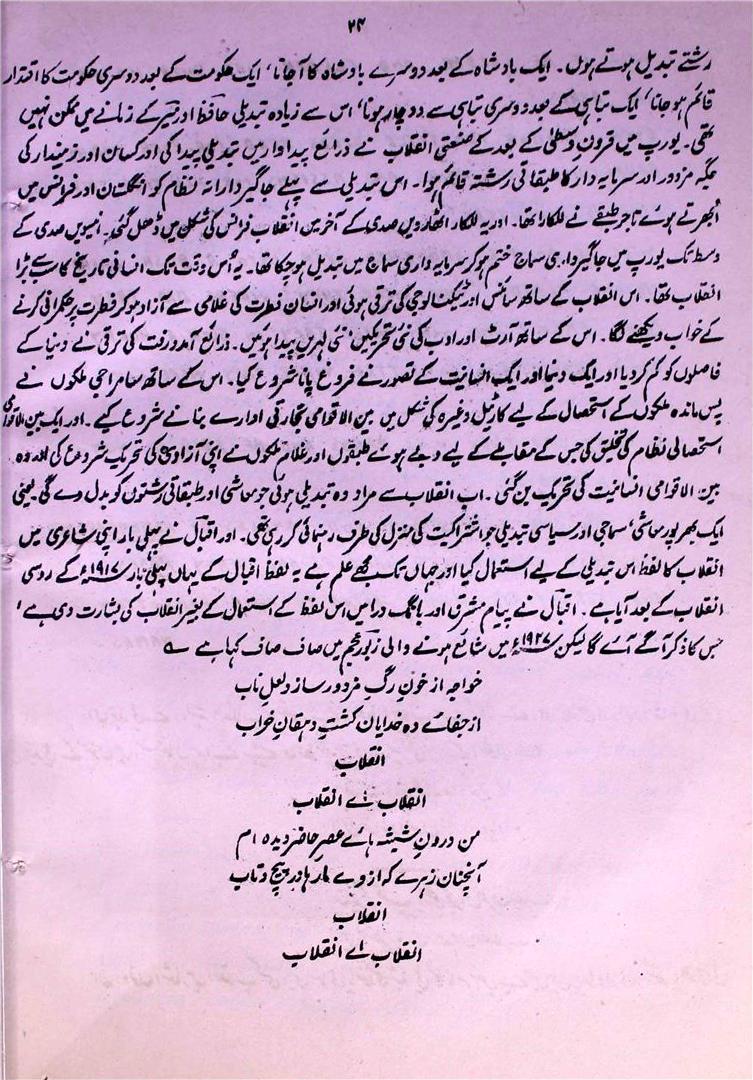 ۲۴
رشتے تبدیل ہوتے ہوں۔ ایک بادشاہ کے بعد دوسرے بادشاہ کا آجانا‘ ایک حکومت کے بعد دوسری حکومت کا اقتدار
قائم ہو جانا‘ ایک تباہی کے بعد دوسری تباہی سے دوچار ہونا‘ اس سے زیادہ تبدیلی حافظ اور میر کے زمانے میں ممکن نہیں
تھی۔ یورپ میں قرون وسطیٰ کے بعد کے صنعتی انقلاب نے ذرائع پیداوار میں تبدیلی پیدا کی اور کسان اور زمیندار کی
جگہ مزدور اور سرمایہ دار کا طبقاتی رشتہ قائم ہوا۔ اس تبدیلی سے پہلے جاگیردارانہ نظام کو انگلستان اور فرانس میں
اُبھرتے ہوئے تاجر طبقے نے للکارا تھا۔ اور یہ للکار اٹھارویں صدی کے آخر میں انقلاب فرانس کی شکل میں ڈھل گئی۔ انیسویں صدی کے
وسط تک یورپ میں جاگیرداری سماج ختم ہو کر سرمایہ داری سماج میں تبدیل ہو چکا تھا۔ یہ اُس وقت تک انسانی تاریخ کا سب سے بڑا
انقلاب تھا۔ اس انقلاب کے ساتھ سائنس اور ٹیکنالوجی کی ترقی ہوئی اور انسان فطرت کی غلامی سے آزاد ہو کر فطرت پر حکمرانی کرنے
کے خواب دیکھنے لگا۔ اس کے ساتھ آرٹ اور ادب کی نئی تحریکیں‘ نئی لہریں پیدا ہوئیں۔ ذرائع آمد و رفت کی ترقی نے دنیا کے
فاصلوں کو کم کر دیا اور ایک دنیا اور ایک انسانیت کے تصور نے فروغ پانا شروع کیا۔ اس کے ساتھ سامراجی ملکوں نے
پس ماندہ ملکوں کے استحصال کے لیے کارٹیل وغیرہ کی شکل میں بین الاقوامی تجارتی ادارے بنانے شروع کیے۔ اور ایک بین الاقوامی
استحصالی نظام کی تخلیق کی جس کے مقابلے کے لیے دبے ہوئے طبقوں اور غلام ملکوں نے اپنی آزادی کی تحریک شروع کی اور وہ
بین الاقوامی انسانیت کی تحریک بن گئی۔ اب انقلاب سے مراد وہ تبدیلی ہوئی جو معاشی اور طبقاتی رشتوں کو بدل دے گی۔ یعنی
ایک بھرپور معاشی‘ سماجی اور سیاسی تبدیلی جو اشتراکیت کی منزل کی طرف رہنمائی کر رہی تھی۔ اور اقبال نے پہلی بار اپنی شاعری میں
انقلاب کا لفظ اس تبدیلی کے لیے استعمال کیا اور جہاں تک مجھے علم ہے یہ لفظ اقبال کے یہاں پہلی بار ۱۹۱۷ء کے روسی
انقلاب کے بعد آیا ہے۔ اقبال نے پیام مشرق اور بانگ درا میں اس لفظ کے استعمال کے بغیر انقلاب کی بشارت دی ہے‘
جس کا ذکر آگے آئے گا لیکن ۱۹۲۷ء میں شائع ہونے والی زبور عجم میں صاف صاف کہا ہے
خواجہ از خونِ رگِ مزدور سازد لعلِ ناب
از جفائے دہ خدایان کشتِ دہقان خراب
انقلاب
انقلاب اے انقلاب
من درونِ شیشہ ہائے عصرِ حاضر دیدہ ام
آنچنان زہرے کہ از وے مارہا در پیچ و تاب
انقلاب
انقلاب اے انقلاب